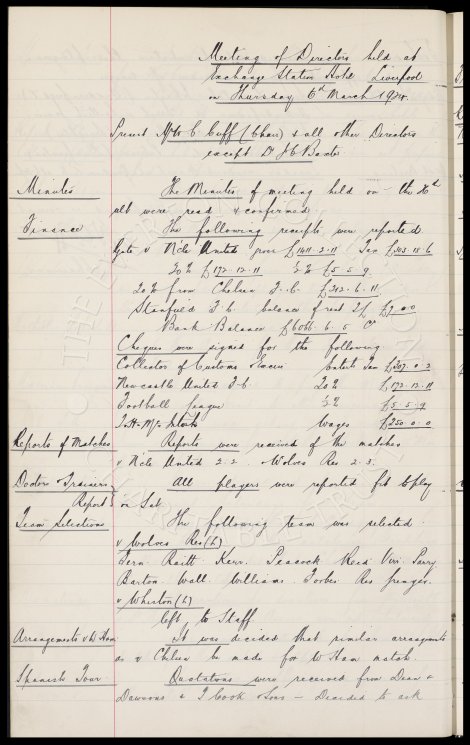 Meeting of Directors held at
Exchange Station Hotel Liverpool
on Thursday 6th March 1924.
Present Mr W C Cuff (Chair) & all other Directors
except Dr J C Baxter
Minutes
The Minutes of meeting held on the
ult were read & confirmed.
Finance
The following receipts were reported
Gate v N'cle United gross £1411.2.11 Tax
20% £172.12.11 ½% £5.5.9
20% from Chelsea F.C. £212.6.11
Stanfield F.C. balance of rent
Bank Balance £6066.6.5 Cr
Cheques were signed for the following
Collector of Customs & Excise Entertt Tax £307.0.2
Newcastle United F.C 20% £172.12.11
Football League ½% £5.5.9
Wages £250.0.0
Reports of Matches
Reports were received of the matches
v N'cle United 2.2. & Wolves Res 2.3.
Doctors & Trainers
Report
All players were reported fit to play
on Sat.
Team Selections
The following team was selected
v Wolves Res (h)
Fern. Raitt. Kerr. Peacock Reid Virr. Parry
Barton. Wall. Williams. Forbes Res
v Whiston (h)
left to Staff
Arrangements v W Ham
It was decided that similar arrangements
as v Chelsea be made for W Ham match.
Spanish Tour
Quotations were received from Dean &
Dawsons & T Cook & Sons - Decided to ask